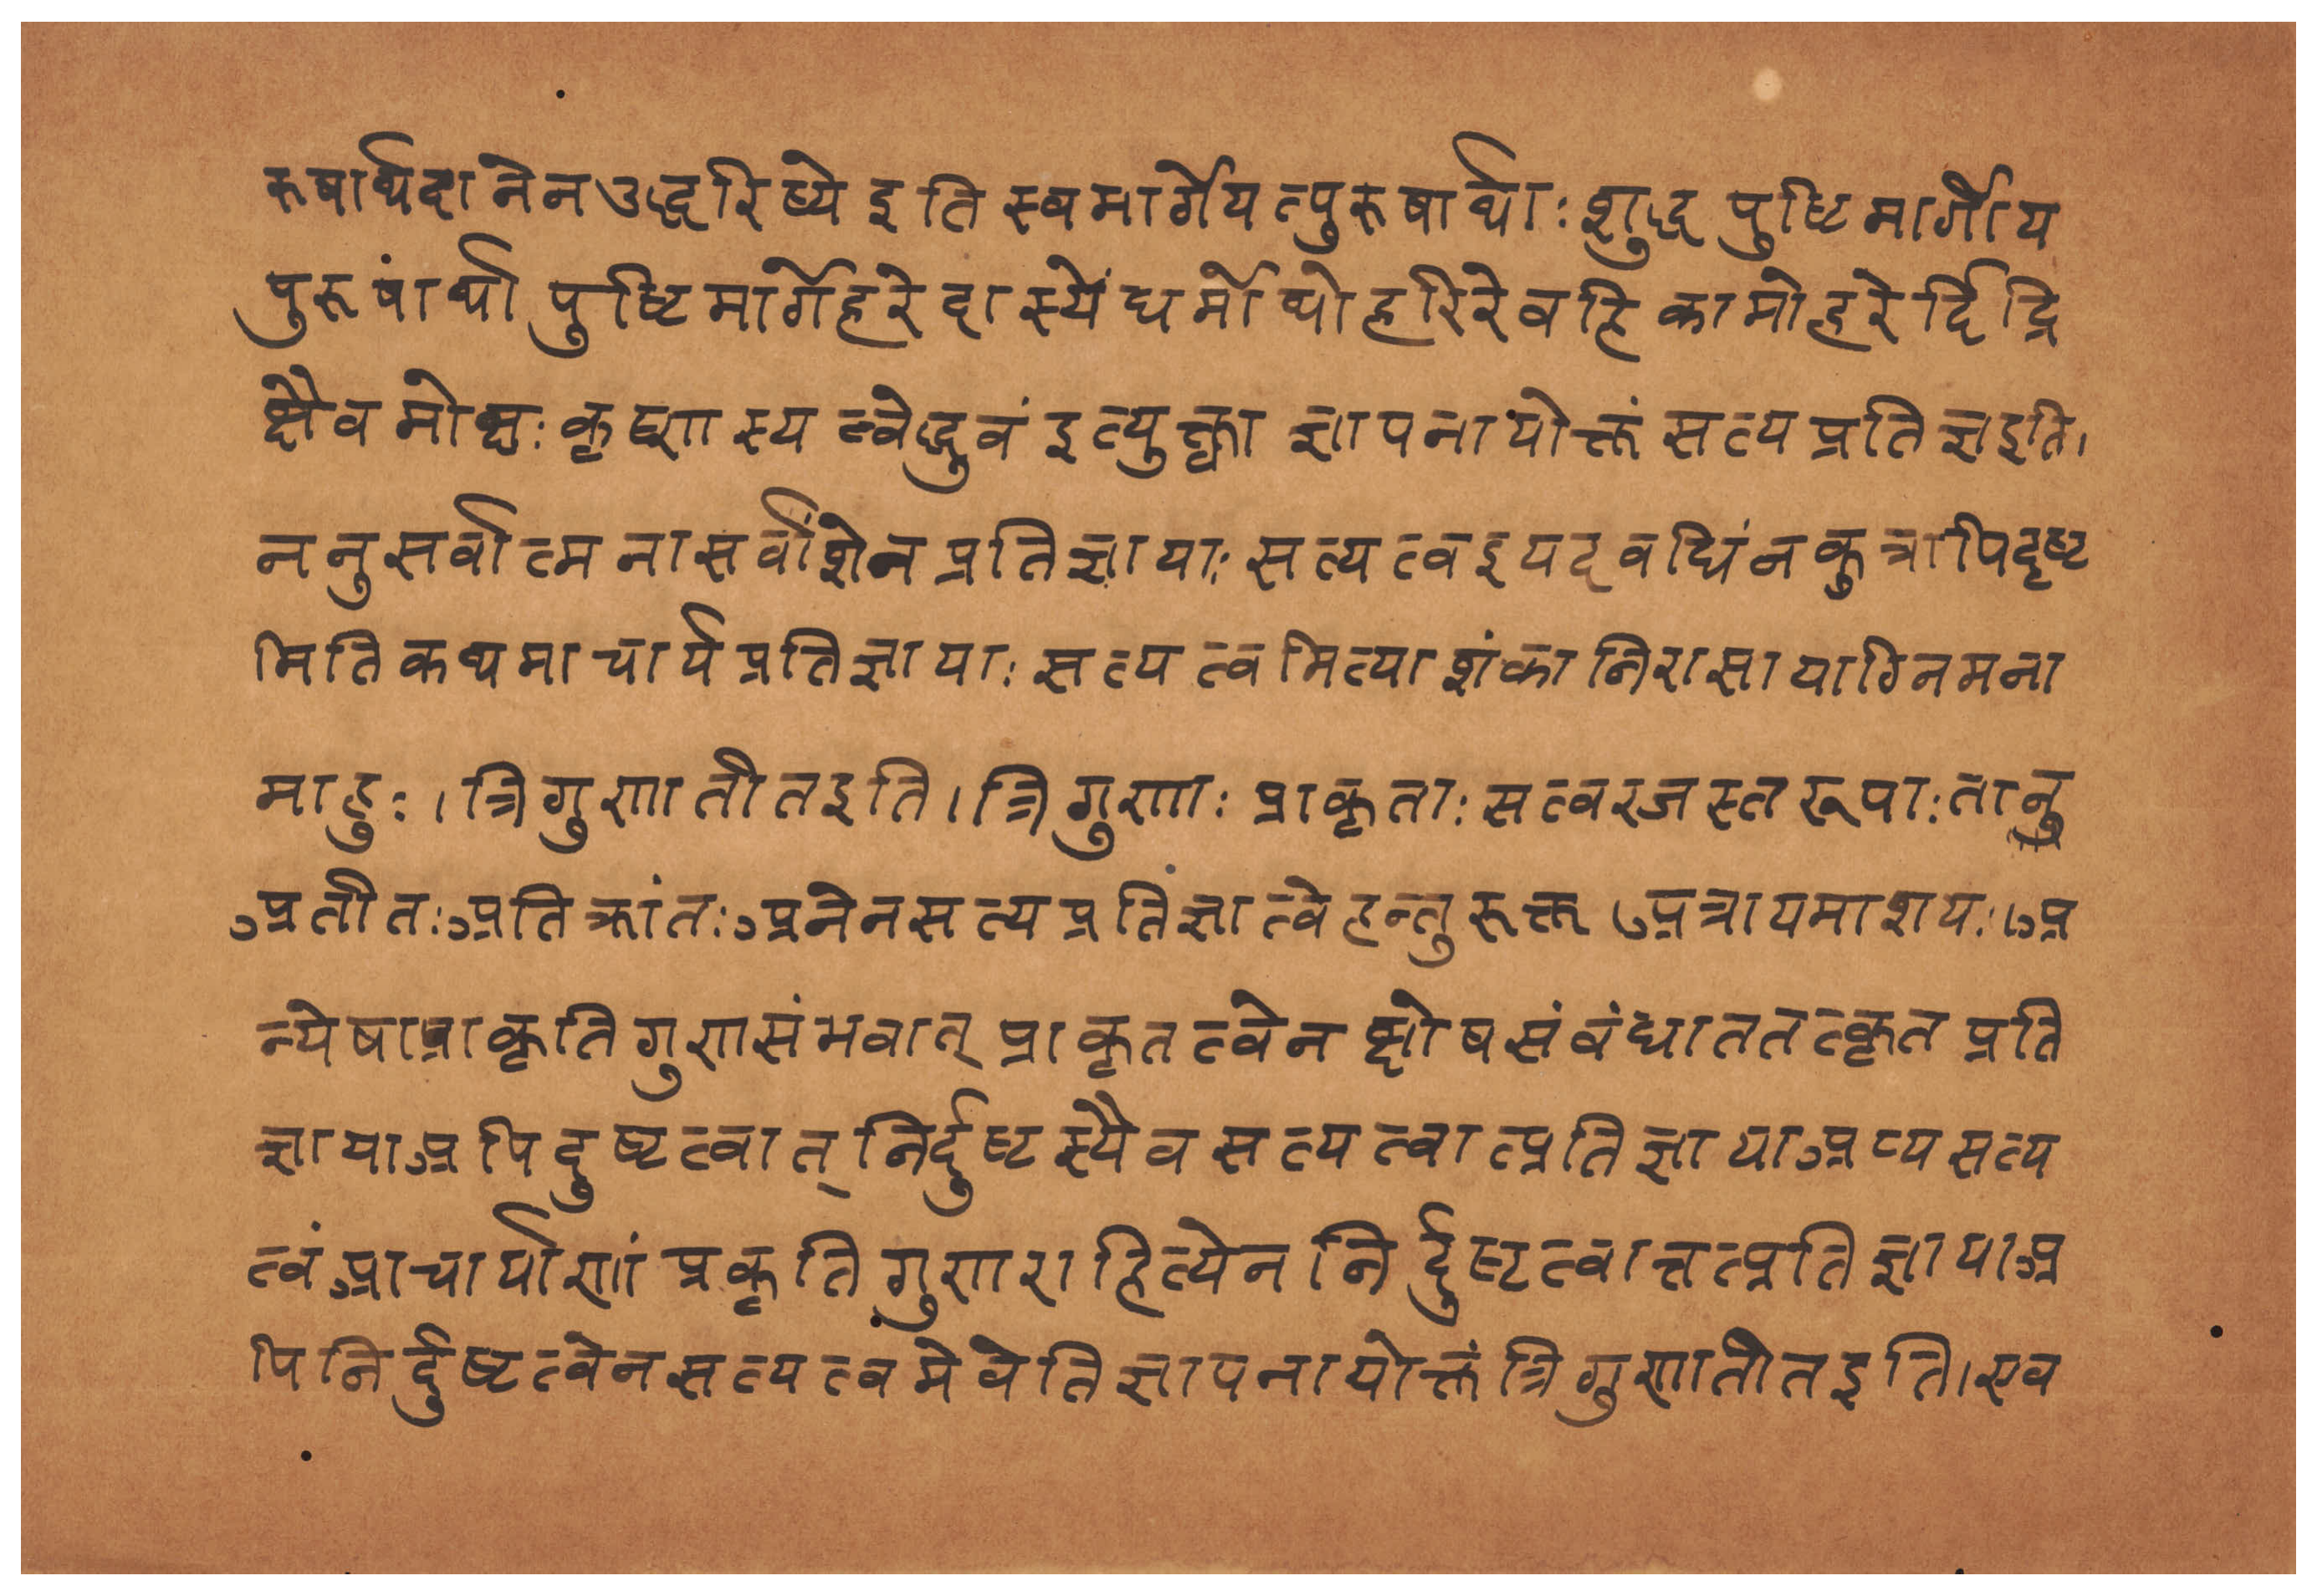 रूषार्थदानेनउद्धरिष्ये इति स्वमार्गेयत्पुरूषार्थाः शुद्ध पुष्टिमार्गीय
पुरूषांर्थो पुष्टिमार्गेहरेदास्येंधर्मोथोहरिरेवहि कामोहरेर्दिद्रि
क्षैव मोक्षः कृष्णस्य त्वेद्धुवं इत्युक्त्वा ज्ञापनायोक्तं सत्यप्रतिज्ञइति।
ननुसर्वात्मनासर्वांशेनप्रतिज्ञायाः सत्यत्वइयदवधिंनकुत्रापिदृष्ट
मितिकथमाचार्यप्रतिज्ञायाः सत्यत्वमित्याशंकानिरासायाग्निमना
माहुः।त्रिगुणातीतइति।त्रिगुणाः प्राकृताः सत्वरजस्तरूपाः तानु
अतीतः अतिक्रांतः अनेनसत्यप्रतिंज्ञात्वेहन्तुरूक्त अत्रायमाशयः।अ
न्येषाप्राकृतिगुणसंभवात् प्राकृतत्वेन क्षोषसंबंधाततत्कृतप्रति
ज्ञायाअपिदुष्टत्वात् निर्दुष्टस्यैव सत्यत्वात्प्रतिज्ञायाअप्यसत्य
त्वंआचार्याणां प्रकृतिगुणराहित्येननिर्दुष्टत्वात्तत्प्रतिज्ञायाअ
पिनिर्दुष्टत्वेनसत्यत्वमेवेतिज्ञापनायोक्तंत्रिगुणातीतइति।एव